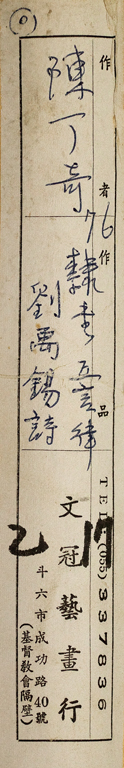 (0)
作者
作品
陳丁奇
76 隸書 五言律
劉禹錫詩
乙 17
TEL (055) 337836
文冠藝畫行
斗六市成功路40號
(基督教會隔壁)